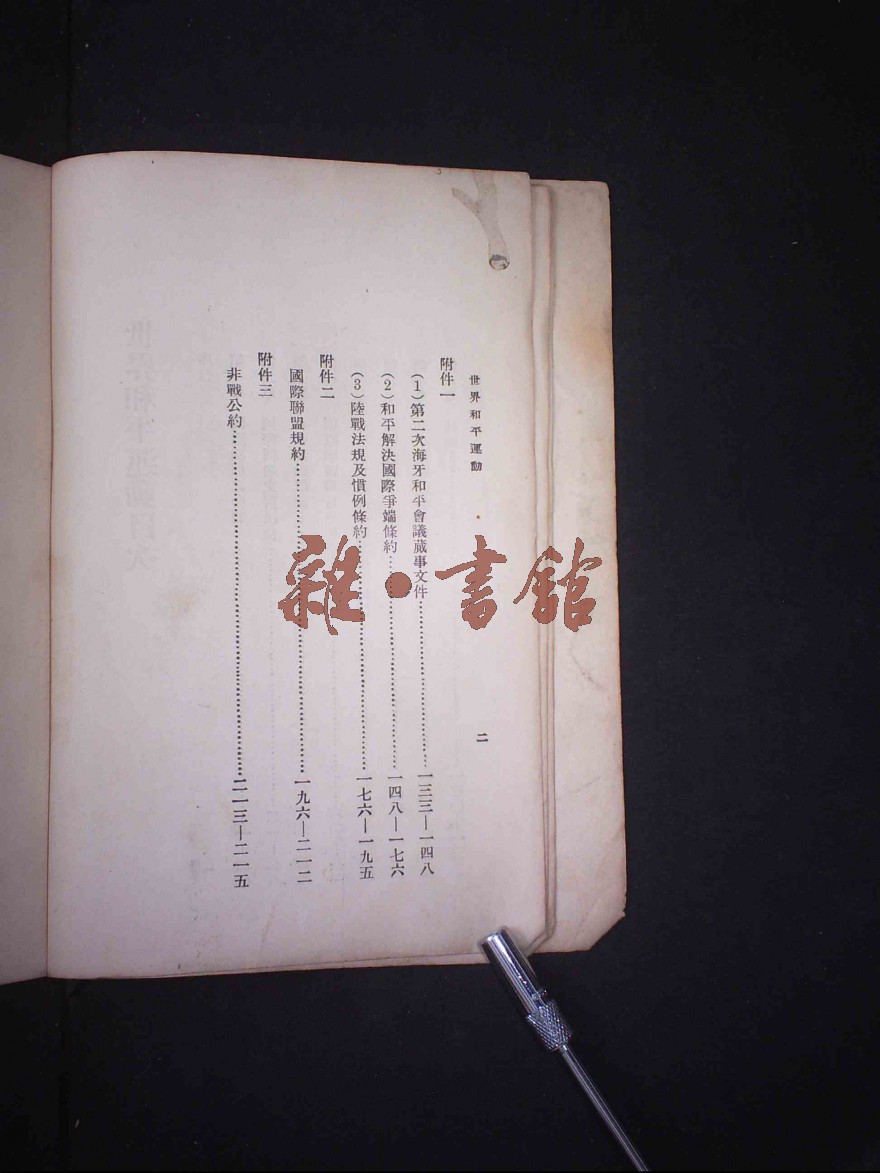 世界和平運動
二
附件一
（1）第二次海牙和平會議蕆事文件……一三三—一四八
（2）和平解決國際爭端條約……一四八—一七六
（3）陸戰法規及慣例條約……一七六—一九五
附件二
國際聯盟規約……一九六—二一二
附件三
非戰公約……二一三—二一五
雜·書館